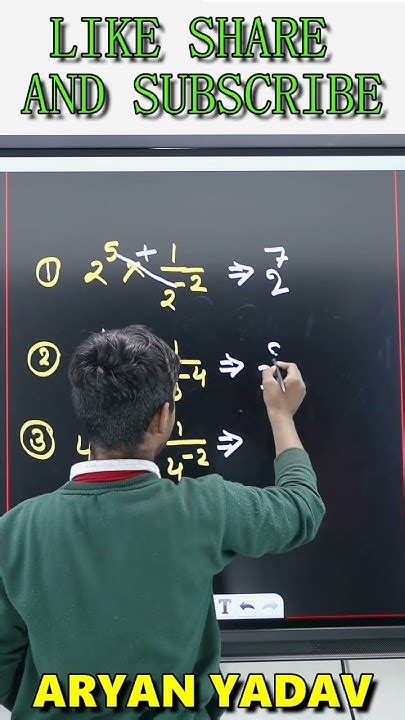 LIKE SHARE
AND SUBSCRIBE
① 2⁵ × + 1/2⁻² ⇒ 2⁷
② 1/ ⁻⁴ ⇒
③ 4 1/4⁻² ⇒
T
ARYAN YADAV